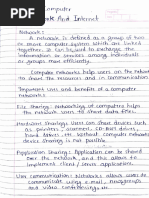 Computer
Network And Internet
Network :
A network is defined as a group of two
or more computer systems which are linked
together. It can be used to exchange the
information or services among individuals
or groups easily.
Computer networks help users on the network
to share the resources and in communication.
Important uses and benefits of a computer
Network
File sharing : Networking of computers helps the
network users to share data files.
Hardware sharing : Users can share devices such
as printers, scanners, CD-ROM drives,
hard drives etc. without computer networks
device sharing is not possible.
Application sharing : Application can be shared
over the network, and this allow to
implement client / server applications.
User communication : Networks allows users to
communicate using e-mail, newsgroups
and video conferencing, etc.